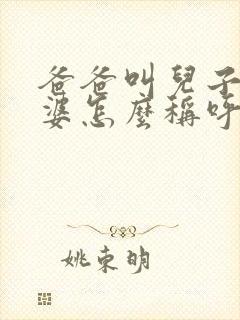 爸爸叫兒子
婆怎麼稱呼
姚束明